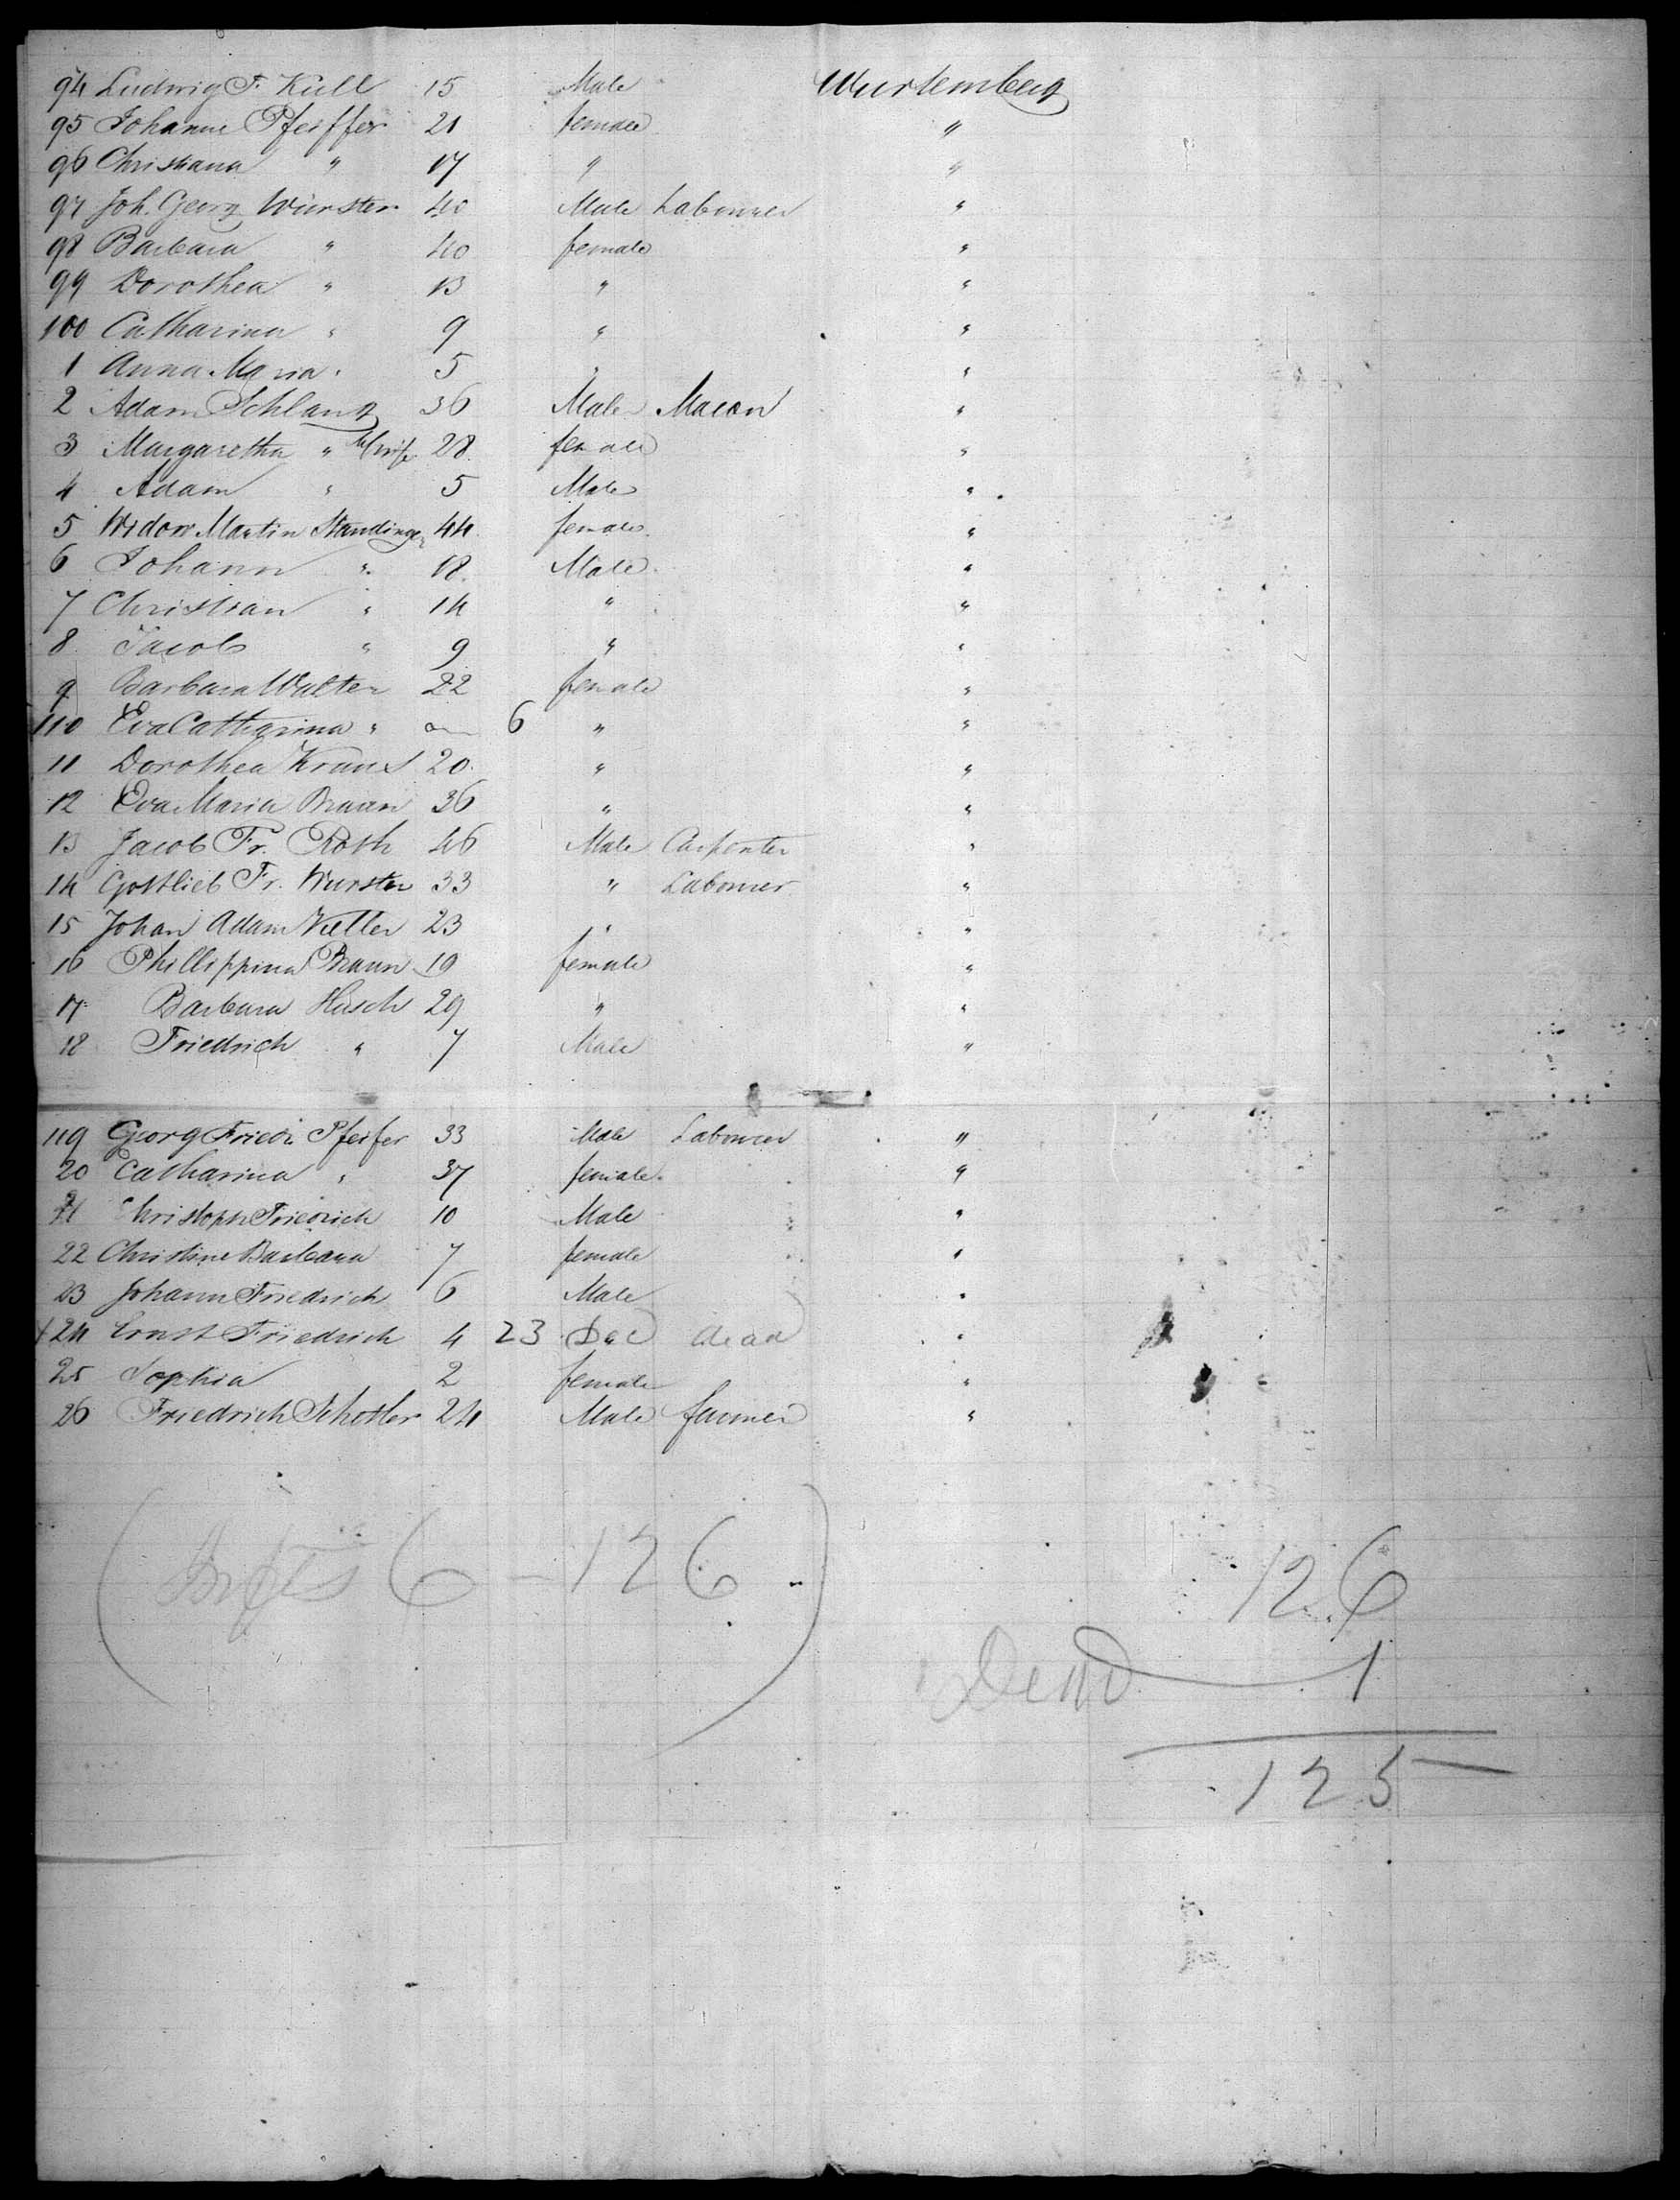 94 Ludwig F. Kull 15 Male Wurtemberg
95 Johanne Pfeiffer 21 female "
96 Christiana " 17 " "
97 Joh. Georg Wurster 40 Male Labourer "
98 Barbara " 40 female "
99 Dorothea " 13 " "
100 Catharina " 9 " "
1 Anna Maria " 5 " "
2 Adam Schlang 36 Male Macon "
3 Margaretha " Wife 28 female "
4 Adam " 5 Male "
5 Widow Martin Standinger 44 female "
6 Johann " 18 Male "
7 Christian " 14 " "
8 Jacob " 9 " "
9 Barbara Walter 22 female "
110 Eva Catharina " 6 " "
11 Dorothea Kraus 20 " "
12 Eva Maria Braun 36 " "
13 Jacob Fr. Roth 46 Male Carpenter "
14 Gottlieb Fr. Wurster 33 " Labourer "
15 Johan Adam 23 " "
16 Phillippina Braun 19 female "
17 Barbara Husch 29 " "
18 Friedrich " 7 Male "
119 Georg Friedr Pfeifer 33 Male Labourer "
20 Catharina " 37 female "
21 Christoph Friedrich 10 Male "
22 Christine Barbara 7 female "
23 Johann Friedrich 6 Male "
24 Ernst Friedrich 4 23 Dec dead "
25 Sophia 2 female "
26 Friedrich Schotler 24 Male farmer "
6 - 126
126
Dead 1
125